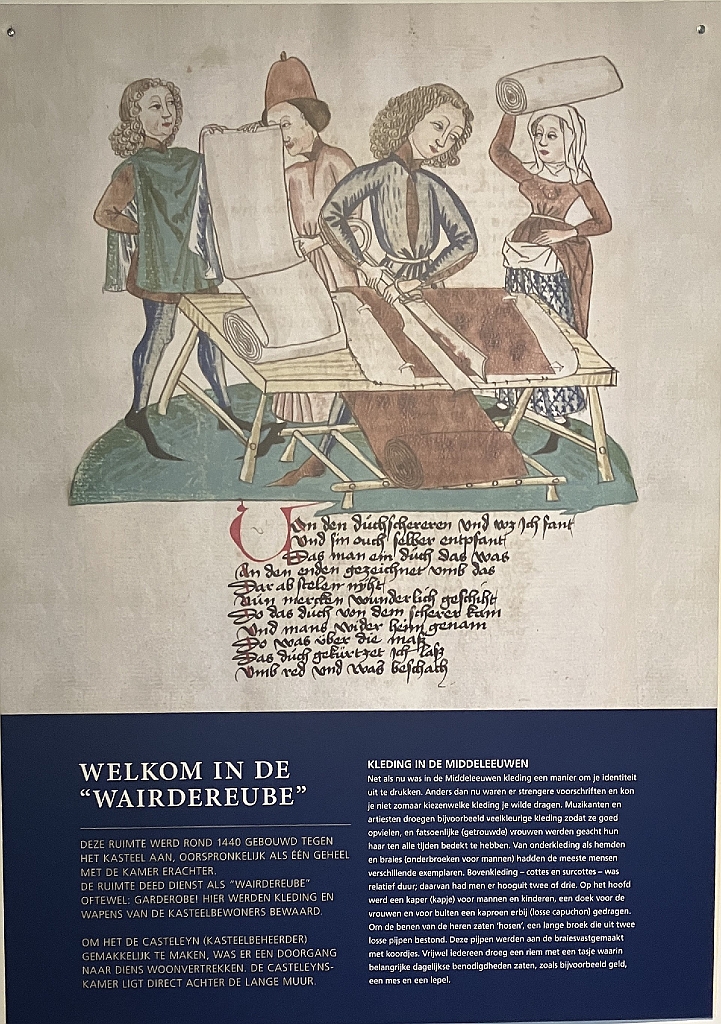 Von den dúchschereren und wz ich fant
Und sin ouch selber entpfant
Das man ein dúch das was
An den enden gezeichnet umb das
Dar ab stelen niht
Nún mercken wunderlich geschiht
So das dúch von dem scherer kam
Und mans wider heim genam
So was úber die masz
Das dúch gekúrtzet ich lasz
Umb red und was beschach
WELKOM IN DE
“WAIRDEREUBE”
DEZE RUIMTE WERD ROND 1440 GEBOUWD TEGEN
HET KASTEEL AAN, OORSPRONKELIJK ALS ÉÉN GEHEEL
MET DE KAMER ERACHTER.
DE RUIMTE DEED DIENST ALS “WAIRDEREUBE”
OFTEWEL: GARDEROBE! HIER WERDEN KLEDING EN
WAPENS VAN DE KASTEELBEWONERS BEWAARD.
OM HET DE CASTELEYN (KASTEELBEHEERDER)
GEMAKKELIJK TE MAKEN, WAS ER EEN DOORGANG
NAAR DIENS WOONVERTREKKEN. DE CASTELEYNS-
KAMER LIGT DIRECT ACHTER DE LANGE MUUR.
KLEDING IN DE MIDDELEEUWEN
Net als nu was in de Middeleeuwen kleding een manier om je identiteit
uit te drukken. Anders dan nu waren er strengere voorschriften en kon
je niet zomaar kiezenwelke kleding je wilde dragen. Muzikanten en
artiesten droegen bijvoorbeeld veelkleurige kleding zodat ze goed
opvielen, en fatsoenlijke (getrouwde) vrouwen werden geacht hun
haar ten alle tijden bedekt te hebben. Van onderkleding als hemden
en braies (onderbroeken voor mannen) hadden de meeste mensen
verschillende exemplaren. Bovenkleding – cottes en surcottes – was
relatief duur; daarvan had men er hooguit twee of drie. Op het hoofd
werd een kaper (kapje) voor mannen en kinderen, een doek voor de
vrouwen en voor buiten een kaproen erbij (losse capuchon) gedragen.
Om de benen van de heren zaten ‘hosen’, een lange broek die uit twee
losse pijpen bestond. Deze pijpen werden aan de braiesvastgemaakt
met koordjes. Vrijwel iedereen droeg een riem met een tasje waarin
belangrijke dagelijkse benodigdheden zaten, zoals bijvoorbeeld geld,
een mes en een lepel.